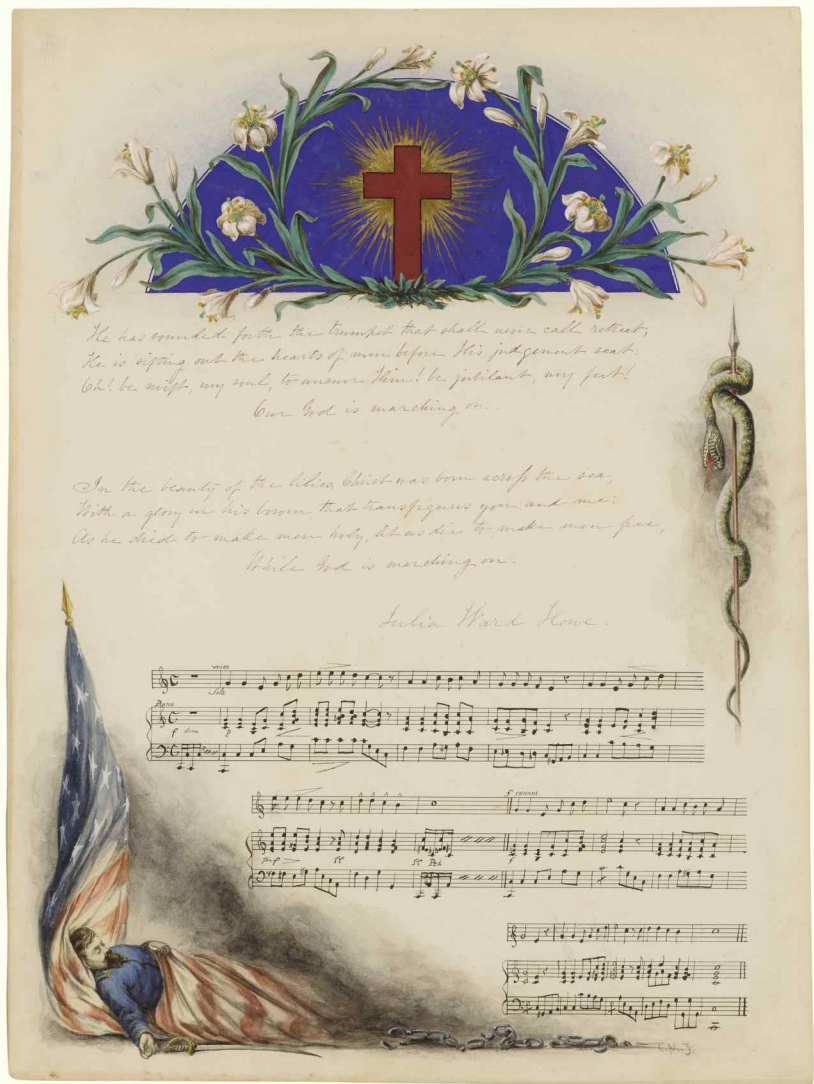 He has sounded forth the trumpet that shall never call retreat;
He is sifting out the hearts of men before His judgement seat:
Oh! be swift, my soul, to answer Him! be jubilant, my feet!
Our God is marching on.
In the beauty of the lilies Christ was born across the sea,
With a glory in his bosom that transfigures you and me:
As he died to make men holy, let us die to make men free,
While God is marching on.
Julia Ward Howe.
voice
Solo
Piano
f dim p
f CHORUS.
pp ff ff Ped f